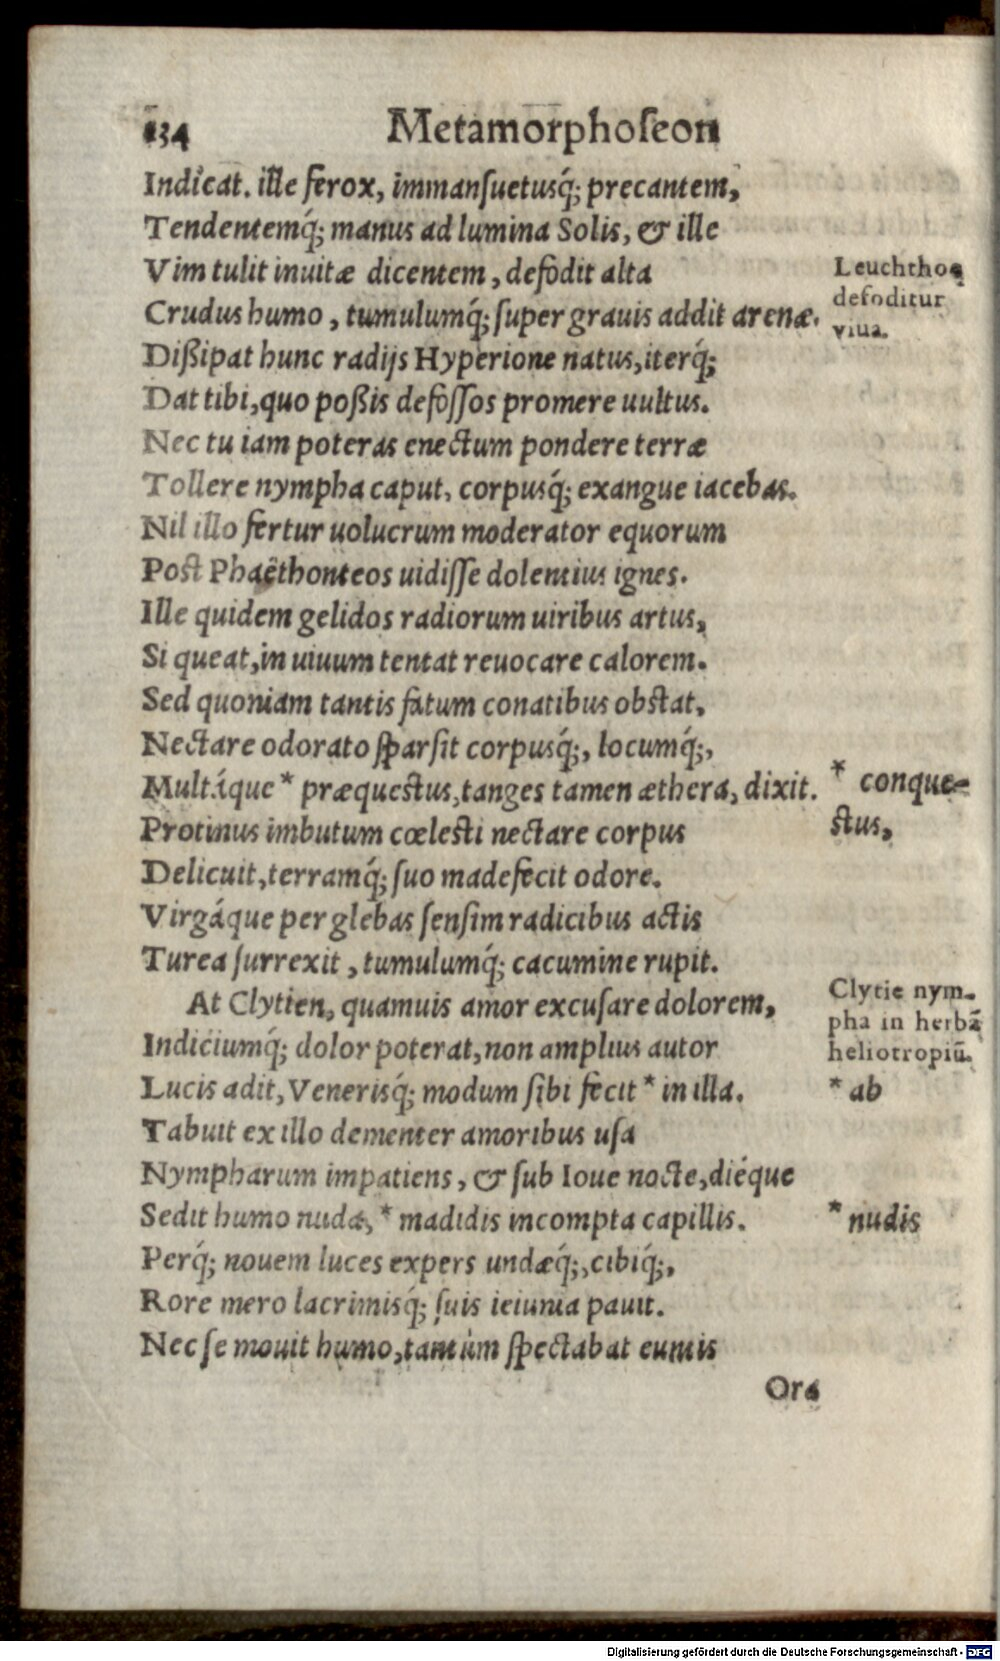 134 Metamorphoſeon
Indicat. ille ferox, immanſuetusq́; precantem,
Tendentemq́; manus ad lumina Solis, & ille
Vim tulit inuitæ dicentem, defodit alta
Crudus humo, tumulumq́; ſuper grauis addit arenæ.
Dißipat hunc radijs Hyperione natus, iterq́;
Dat tibi, quo poßis defoſſos promere uultus.
Nec tu iam poteras enectum pondere terræ
Tollere nympha caput, corpusq́; exangue iacebas.
Nil illo fertur uolucrum moderator equorum
Post Phaëthonteos uidiſſe dolentius ignes.
Ille quidem gelidos radiorum uiribus artus,
Si queat, in uiuum tentat reuocare calorem.
Sed quoniam tantis fatum conatibus obstat,
Nectare odorato ſparſit corpusq́;, locumq́;,
Multáque * præquestus, tanges tamen æthera, dixit.
Protinus imbutum cœlesti nectare corpus
Delicuit, terramq́; ſuo madefecit odore.
Virgáque per glebas ſenſim radicibus actis
Turea ſurrexit, tumulumq́; cacumine rupit.
At Clytien, quamuis amor excuſare dolorem,
Indiciumq́; dolor poterat, non amplius autor
Lucis adit, Venerisq́; modum ſibi fecit * in illa.
Tabuit ex illo dementer amoribus uſa
Nympharum impatiens, & ſub Ioue nocte, diéque
Sedit humo nuda, * madidis incompta capillis.
Perq́; nouem luces expers undæq́;, cibiq́;,
Rore mero lacrimisq́; ſuis ieiunia pauit.
Nec ſe mouit humo, tantùm ſpectabat euntis
Ora
Leuchthoę
defoditur
viua.
* conque-
stus,
Clytie nym-
pha in herbã
heliotropiũ.
* ab
* nudis
Digitalisierung gefördert durch die Deutsche Forschungsgemeinschaft - DFG